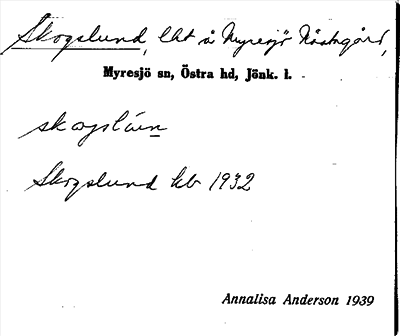 Skogslund, lht å Myresjö Näsbagård,
Myresjö sn, Östra hd, Jönk. l.
skogslún
Skogslund kb 1932
Annalisa Anderson 1939